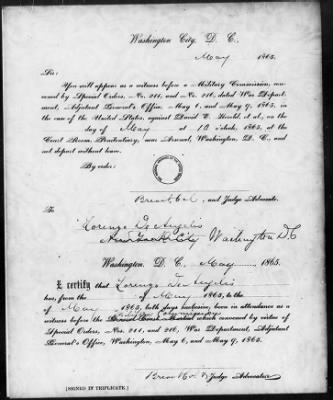 Washington City, D. C.
May 1865.
Sir:
You will appear as a witness before a Military Commission, con-
vened by Special Orders, No. 211, and No. 216, dated War Depart-
ment, Adjutant General's Office, May 6, and May 9, 1865, in
the case of the United States, against David E. Herold, et al., on the
day of May at 10 o'clock, 1865, at the
Court Room, Penitentiary, near Arsenal, Washington, D. C., and
not depart without leave.
By order:
Brevet Col, and Judge Advocate.
To
Lorenzo De Angelis
Washington D.C
Washington, D. C. May 1865.
I certify that Lorenzo De Angelis
has, from the of May 1865, to the
of May 1865, both days inclusive, been in attendance as a
witness before the Military Commission which convened by virtue of
Special Orders, Nos. 211, and 216, War Department, Adjutant
General's Office, Washington, May 6, and May 9, 1865.
Brevet Col & Judge Advocate
[SIGNED IN TRIPLICATE.]